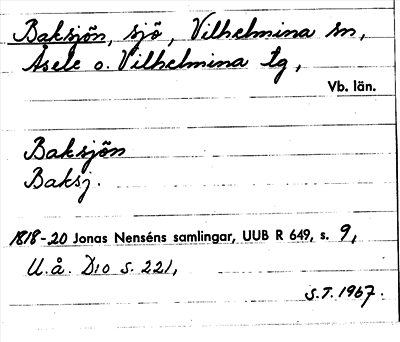 Baksjön, sjö, Vilhelmina sn,
Åsele o. Vilhelmina tg,
Vb. län.
Baksjön
Baksj.
1818-20 Jonas Nenséns samlingar, UUB R 649, s. 9,
U.å. D10 s. 221,
S.T. 1967.